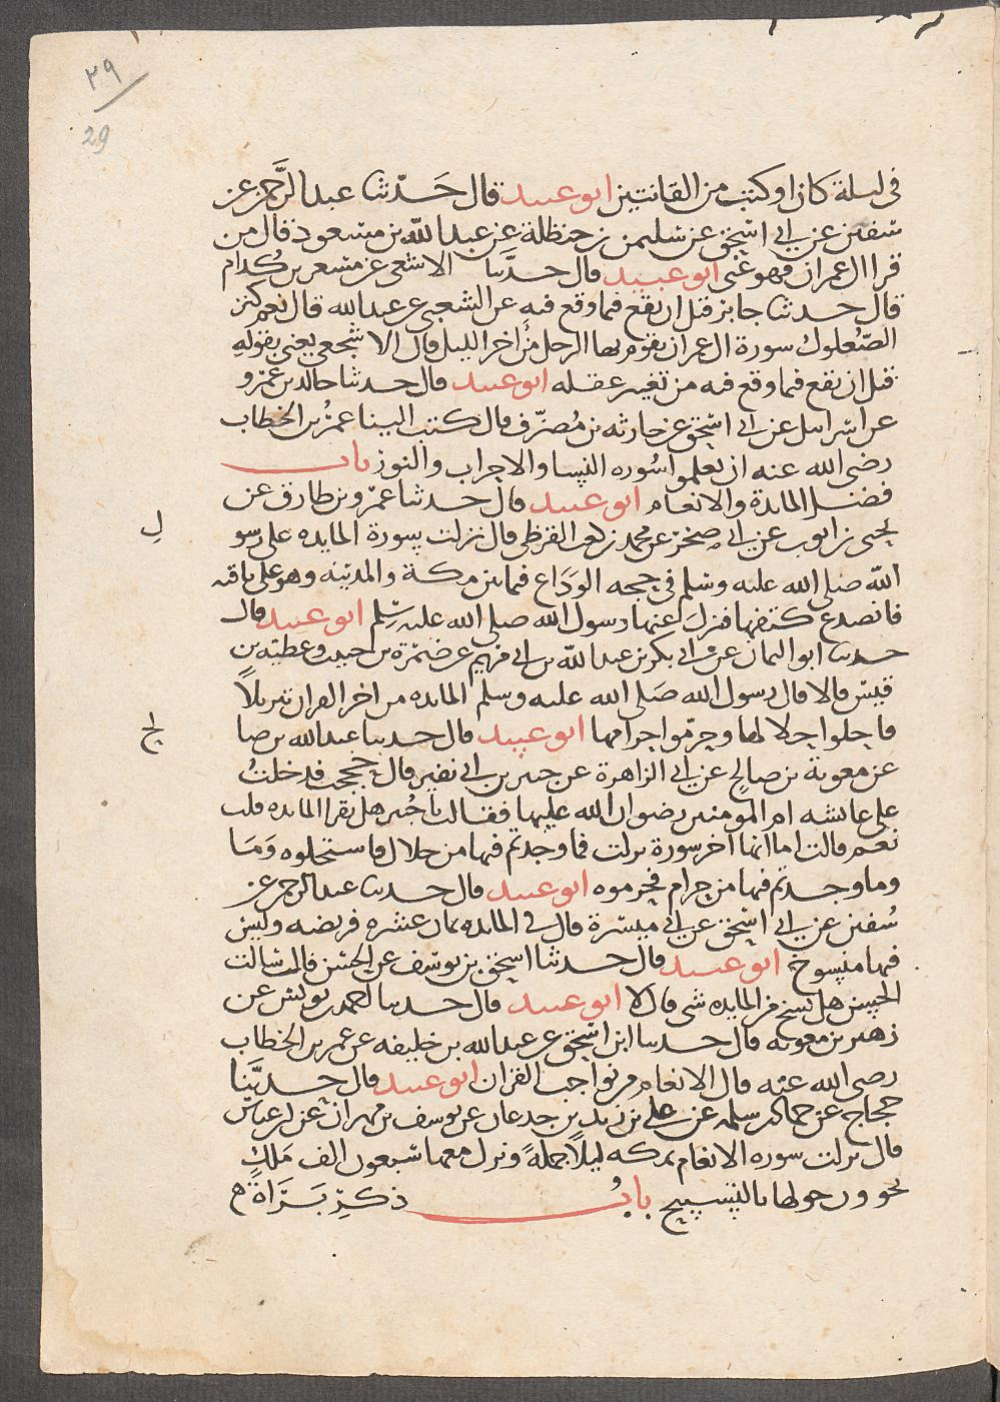 ٢٩
29
في ليلة كان او كتب من القانتين ابو عبيد قال حدثنا عبد الرحمن عن
سفين عن ابي اسحق عن سليمن بن حنظلة عن عبد الله بن مسعود قال من
قرا ال عمران فهو غني ابو عبيد قال حدثنا الاشجعي عن مسعر بن كدام
قال حدثنا جابر قبل ان يقع فيما وقع فيه عن الشعبي عن عبد الله قال نعم كنز
الصعلوك سورة ال عمران يقوم بها الرجل من اخر الليل قال الاشجعي يعني بقوله
قبل ان يقع فيما وقع فيه من تغير عقله ابو عبيد قال حدثنا خالد بن عمرو
عن اسرائيل عن ابي اسحق عن حارثه بن مضرب قال كتب الينا عمر بن الخطاب
رضي الله عنه ان تعلموا سوره النسا والاحزاب والنور باب
فضل المايدة والانعام ابو عبيد قال حدثنا عمرو بن طارق عن
يحيى بن ايوب عن ابي صخر عن محمد بن كعب القرظي قال نزلت سورة المايده على رسو
ل
الله صلى الله عليه وسلم في حجه الوداع فيما بين مكة والمدينه وهو على ناقته
فانصدع كتفها فنزل عنها رسول الله صلى الله عليه وسلم ابو عبيد قال
حدثنا ابو اليمان عن ابي بكر بن عبد الله بن ابي مريم عن ضمرة بن حبيب وعطيه بن
قيس قالا قال رسول الله صلى الله عليه وسلم المايده من اخر القران تنزيلا
فاحلوا حلالها وحرموا حرامها ابو عبيد قال حدثنا عبد الله بن صا
لح
عن معوية بن صالح عن ابي الزاهرة عن جبير بن نفير قال حججت فدخلت
على عائشه ام المومنين رضوان الله عليها فقالت يا جبير هل تقرا المايده قلت
نعم قالت اما انها اخر سورة نزلت فما وجدتم فيها من حلال فاستحلوه وما
وما وجدتم فيها من حرام فحرموه ابو عبيد قال حدثنا عبد الرحمن عن
سفين عن ابي اسحق عن ابي ميسرة قال في المايده ثمان عشره فريضه وليس
فيها منسوخ ابو عبيد قال حدثنا اسحق بن يوسف عن الحسن قال سالت
الحسن هل نسخ من المايده شي قال لا ابو عبيد قال حدثنا احمد بن يونس عن
زهير بن معويه قال حدثنا ابن اسحق عن عبد الله بن خليفه عن عمر بن الخطاب
رضي الله عنه قال الانعام من نواجب القران ابو عبيد قال حدثنا
حجاج عن حماد بن سلمه عن علي بن زيد بن جدعان عن يوسف بن مهران عن ابن عباس
قال نزلت سوره الانعام بمكه ليلا جملة ونزل معها سبعون الف ملك
حولها بالتسبيح باب ذكر براة